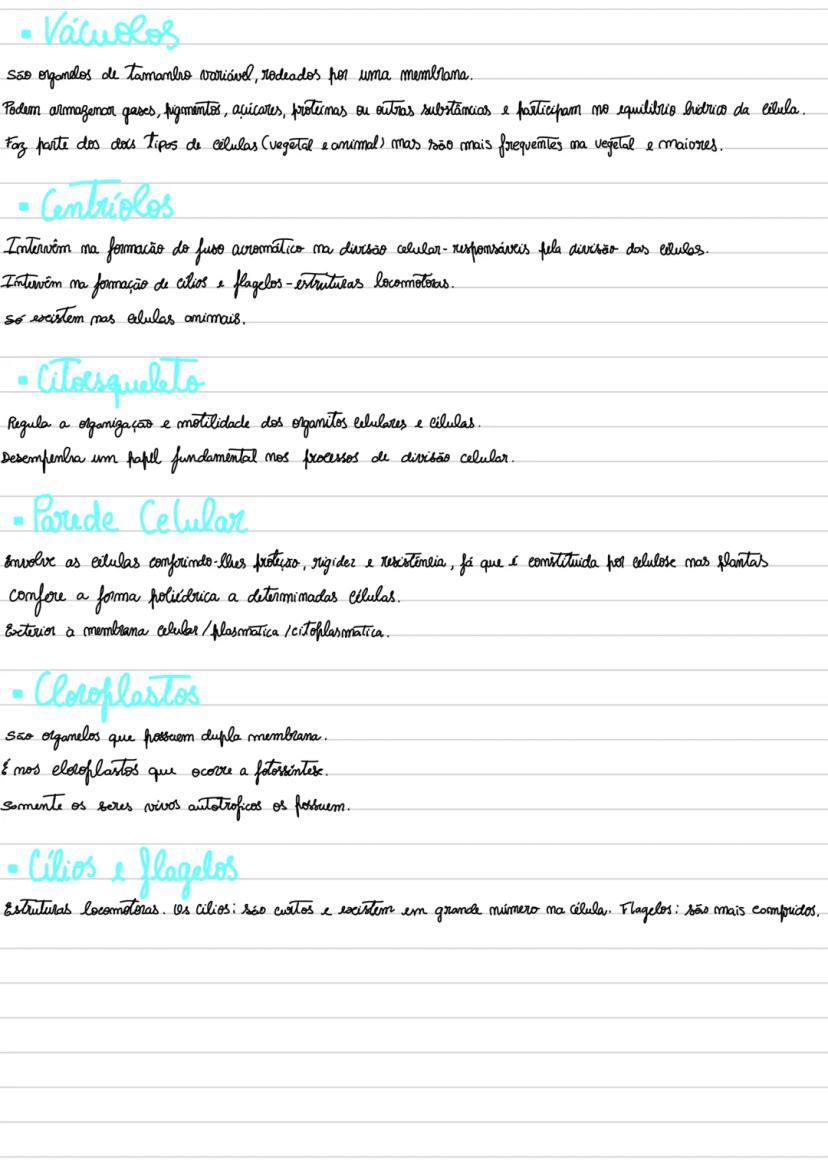 ▪ Vácuolos
São organelos de tamanho variável, rodeados por uma membrana.
Podem armazenar gases, pigmentos, açucares, proteínas ou outras substâncias e participam no equilíbrio hídrico da célula.
Faz parte dos dois tipos de células (vegetal e animal) mas são mais frequentes na vegetal e maiores.
▪ Centríolos
Intervêm na formação do fuso acromático na divisão celular - responsáveis pela divisão das células.
Intervêm na formação de cílios e flagelos - estruturas locomotoras.
Só existem nas células animais.
▪ Citoesqueleto
Regula a organização e motilidade dos organitos celulares e células.
Desempenha um papel fundamental nos processos de divisão celular.
▪ Parede Celular
Envolve as células conferindo-lhes proteção, rigidez e resistência, já que é constituída por celulose nas plantas
Confere a forma poliédrica a determinadas células.
Exterior à membrana celular / plasmática / citoplasmática.
▪ Cloroplastos
São organelos que possuem dupla membrana.
É nos cloroplastos que ocorre a fotossíntese.
Somente os seres vivos autotroficos os possuem.
▪ Cílios e flagelos
Estruturas locomotoras. Os cílios: são curtos e existem em grande número na célula. Flagelos: são mais compridos.